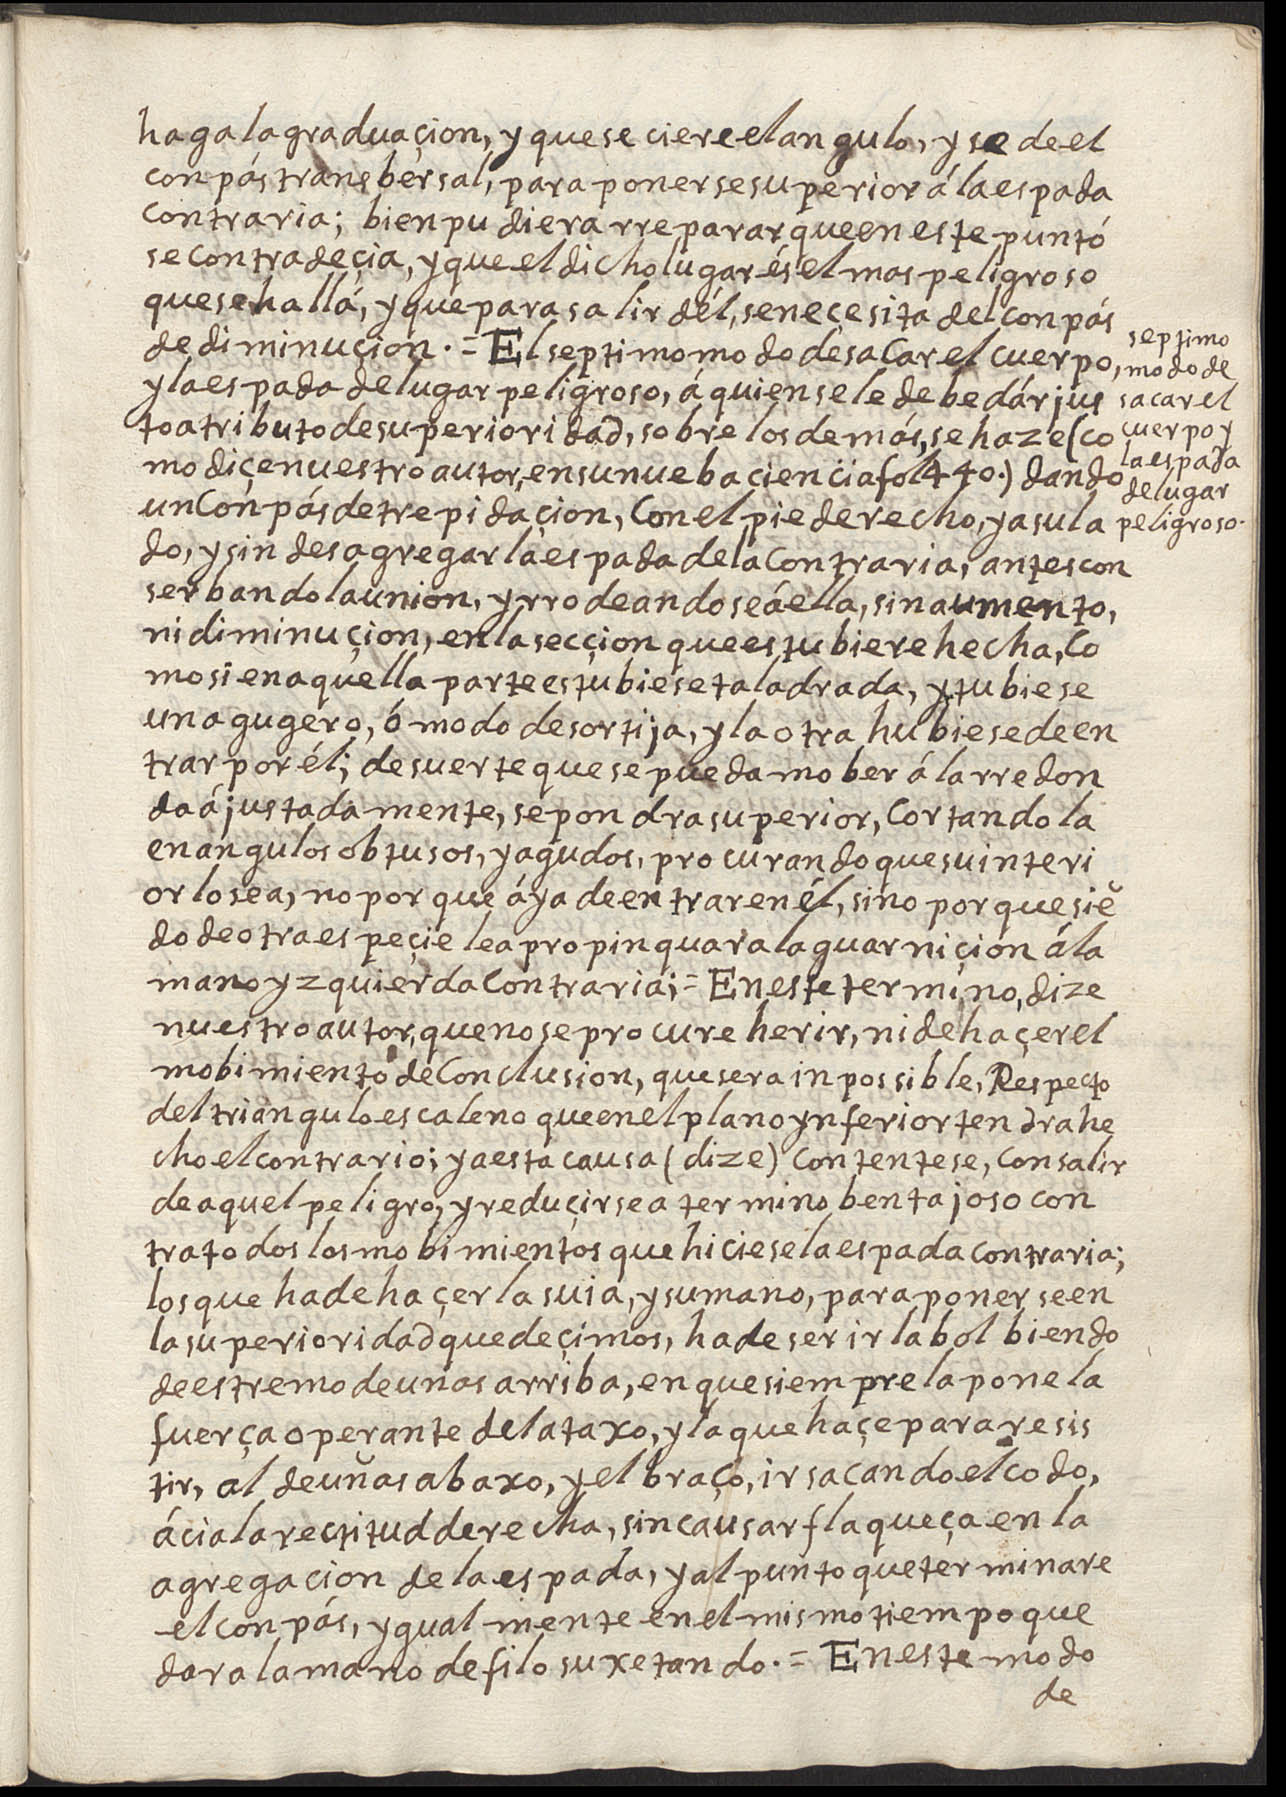 haga la graduaçion, y que se ciere el angulo, y se de el
conpás transbersal, para ponerse superior á la espada
contraria; bien pudiera rreparar que en este puntó
se contradeçia, y que el dicho lugar és el mas peligroso
que se hallá, y que para salir dél, se neçesita del conpás
de diminuçion. = El septimo modo de sacar el cuerpo,
y la espada de lugar peligroso, á quien se le debe dár jus
to atributo de superioridad, sobre los demás, se haze (co
mo diçe nuestro autor, en su nueba ciencia fol 440.) dando
un conpás de trepidaçion, con el pie derecho, y a su la
do, y sin desagregar la espada de la contraria, antes con
serbando la union, y rrodeandose á ella, sin aumento,
ni diminuçion, en la secçion que estubiere hecha, co
mo si en aquella parte estubiese taladrada, y tubiese
un agugero, ó modo de sortija, y la otra hubiese de en
trar por él; de suerte que se pueda mober á la rredon
da ájustadamente, se pondra superior, cortandola
en angulos obtusos, y agudos, procurando que su interi
or lo sea, no por que áya de entrar en él, sino por que siē
do de otra espeçie le apropinquara la guarniçion á la
mano yzquierda contraria; = En este termino, dize
nuestro autor, que no se procure herir, ni de haçer el
mobimiento de conclusion, que sera inpossible, Respecto
del triangulo escaleno que en el plano ynferior tendra he
cho el contrario; y a esta causa (dize) contentese, con salir
de aquel peligro, y reduçirse a termino bentajoso con
tra todos los mobimientos que hiciese la espada contraria;
los que ha de haçer la suia, y su mano, para ponerse en
la superioridad que deçimos, ha de ser ir la bolbiendo
de estremo de uñas arriba, en que siempre la pone la
fuerça operante del ataxo, y la que haçe para resis
tir, al de uñas abaxo, y el braço, ir sacando el codo,
ácia la rectitud derecha, sin causar flaqueça en la
agregacion de la espada, y al punto que terminare
el conpás, ygualmente en el mismo tiempo que
dara la mano de filo suxetando. = En este modo
de
septimo
modo de
sacar el
cuerpo y
la espada
de lugar
peligroso.